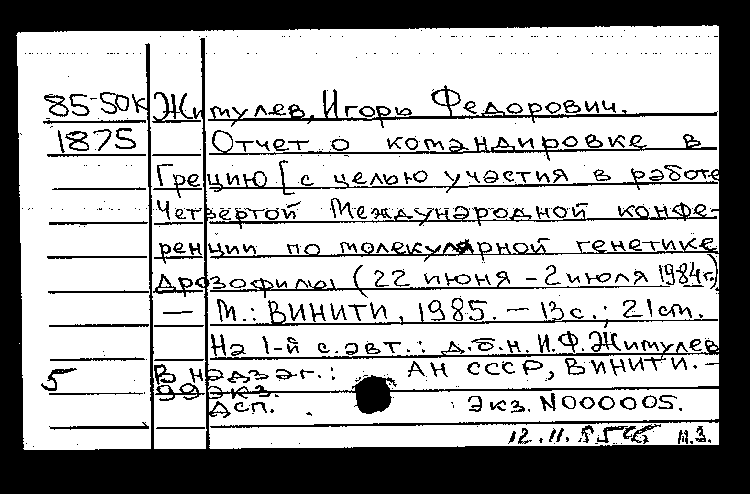 85-50К Жимулев, Игорь Федорович.
1875 Отчет о командировке в
Грецию [с целью участия в работе
Четвертой Международной конфе-
ренции по молекулярной генетике
дрозофилы (22 июня - 2 июля 1984г.)
— М.: ВИНИТИ, 1985. — 13 с.; 21 см.
На 1-й с. авт.: д.б.н. И.Ф. Жимулев
5 В надзаг.: АН СССР, ВИНИТИ. —
99 экз.
Дсп. Экз. N000005.
12.11.85 Н.З.